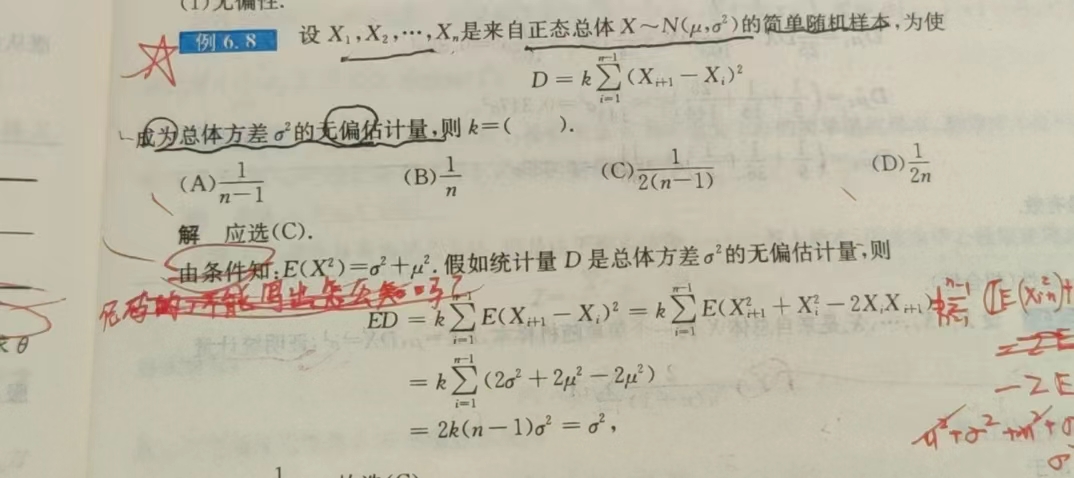 (1)无偏性.
例 6.8 设 X₁,X₂,⋯,Xₙ是来自正态总体 X～N(μ,σ²)的简单随机样本,为使
D = k∑_{i=1}^{n-1}(X_{i+1} − X_i)²
成为总体方差 σ²的无偏估计量,则 k=( ).
(A) 1/(n−1) (B) 1/n (C) 1/(2(n−1)) (D) 1/(2n)
解 应选(C).
由条件知:E(X²)=σ²+μ². 假如统计量 D 是总体方差 σ²的无偏估计量,则
写出怎么知吗?
ED = k∑_{i=1}^{n-1}E(X_{i+1} − X_i)² = k∑_{i=1}^{n-1}E(X²_{i+1} + X²_i − 2X_iX_{i+1})
= 2E
= k∑_{i=1}^{n-1}(2σ² + 2μ² − 2μ²)
− 2E
= 2k(n−1)σ² = σ²,
μ²+σ²+μ²+σ
求 θ